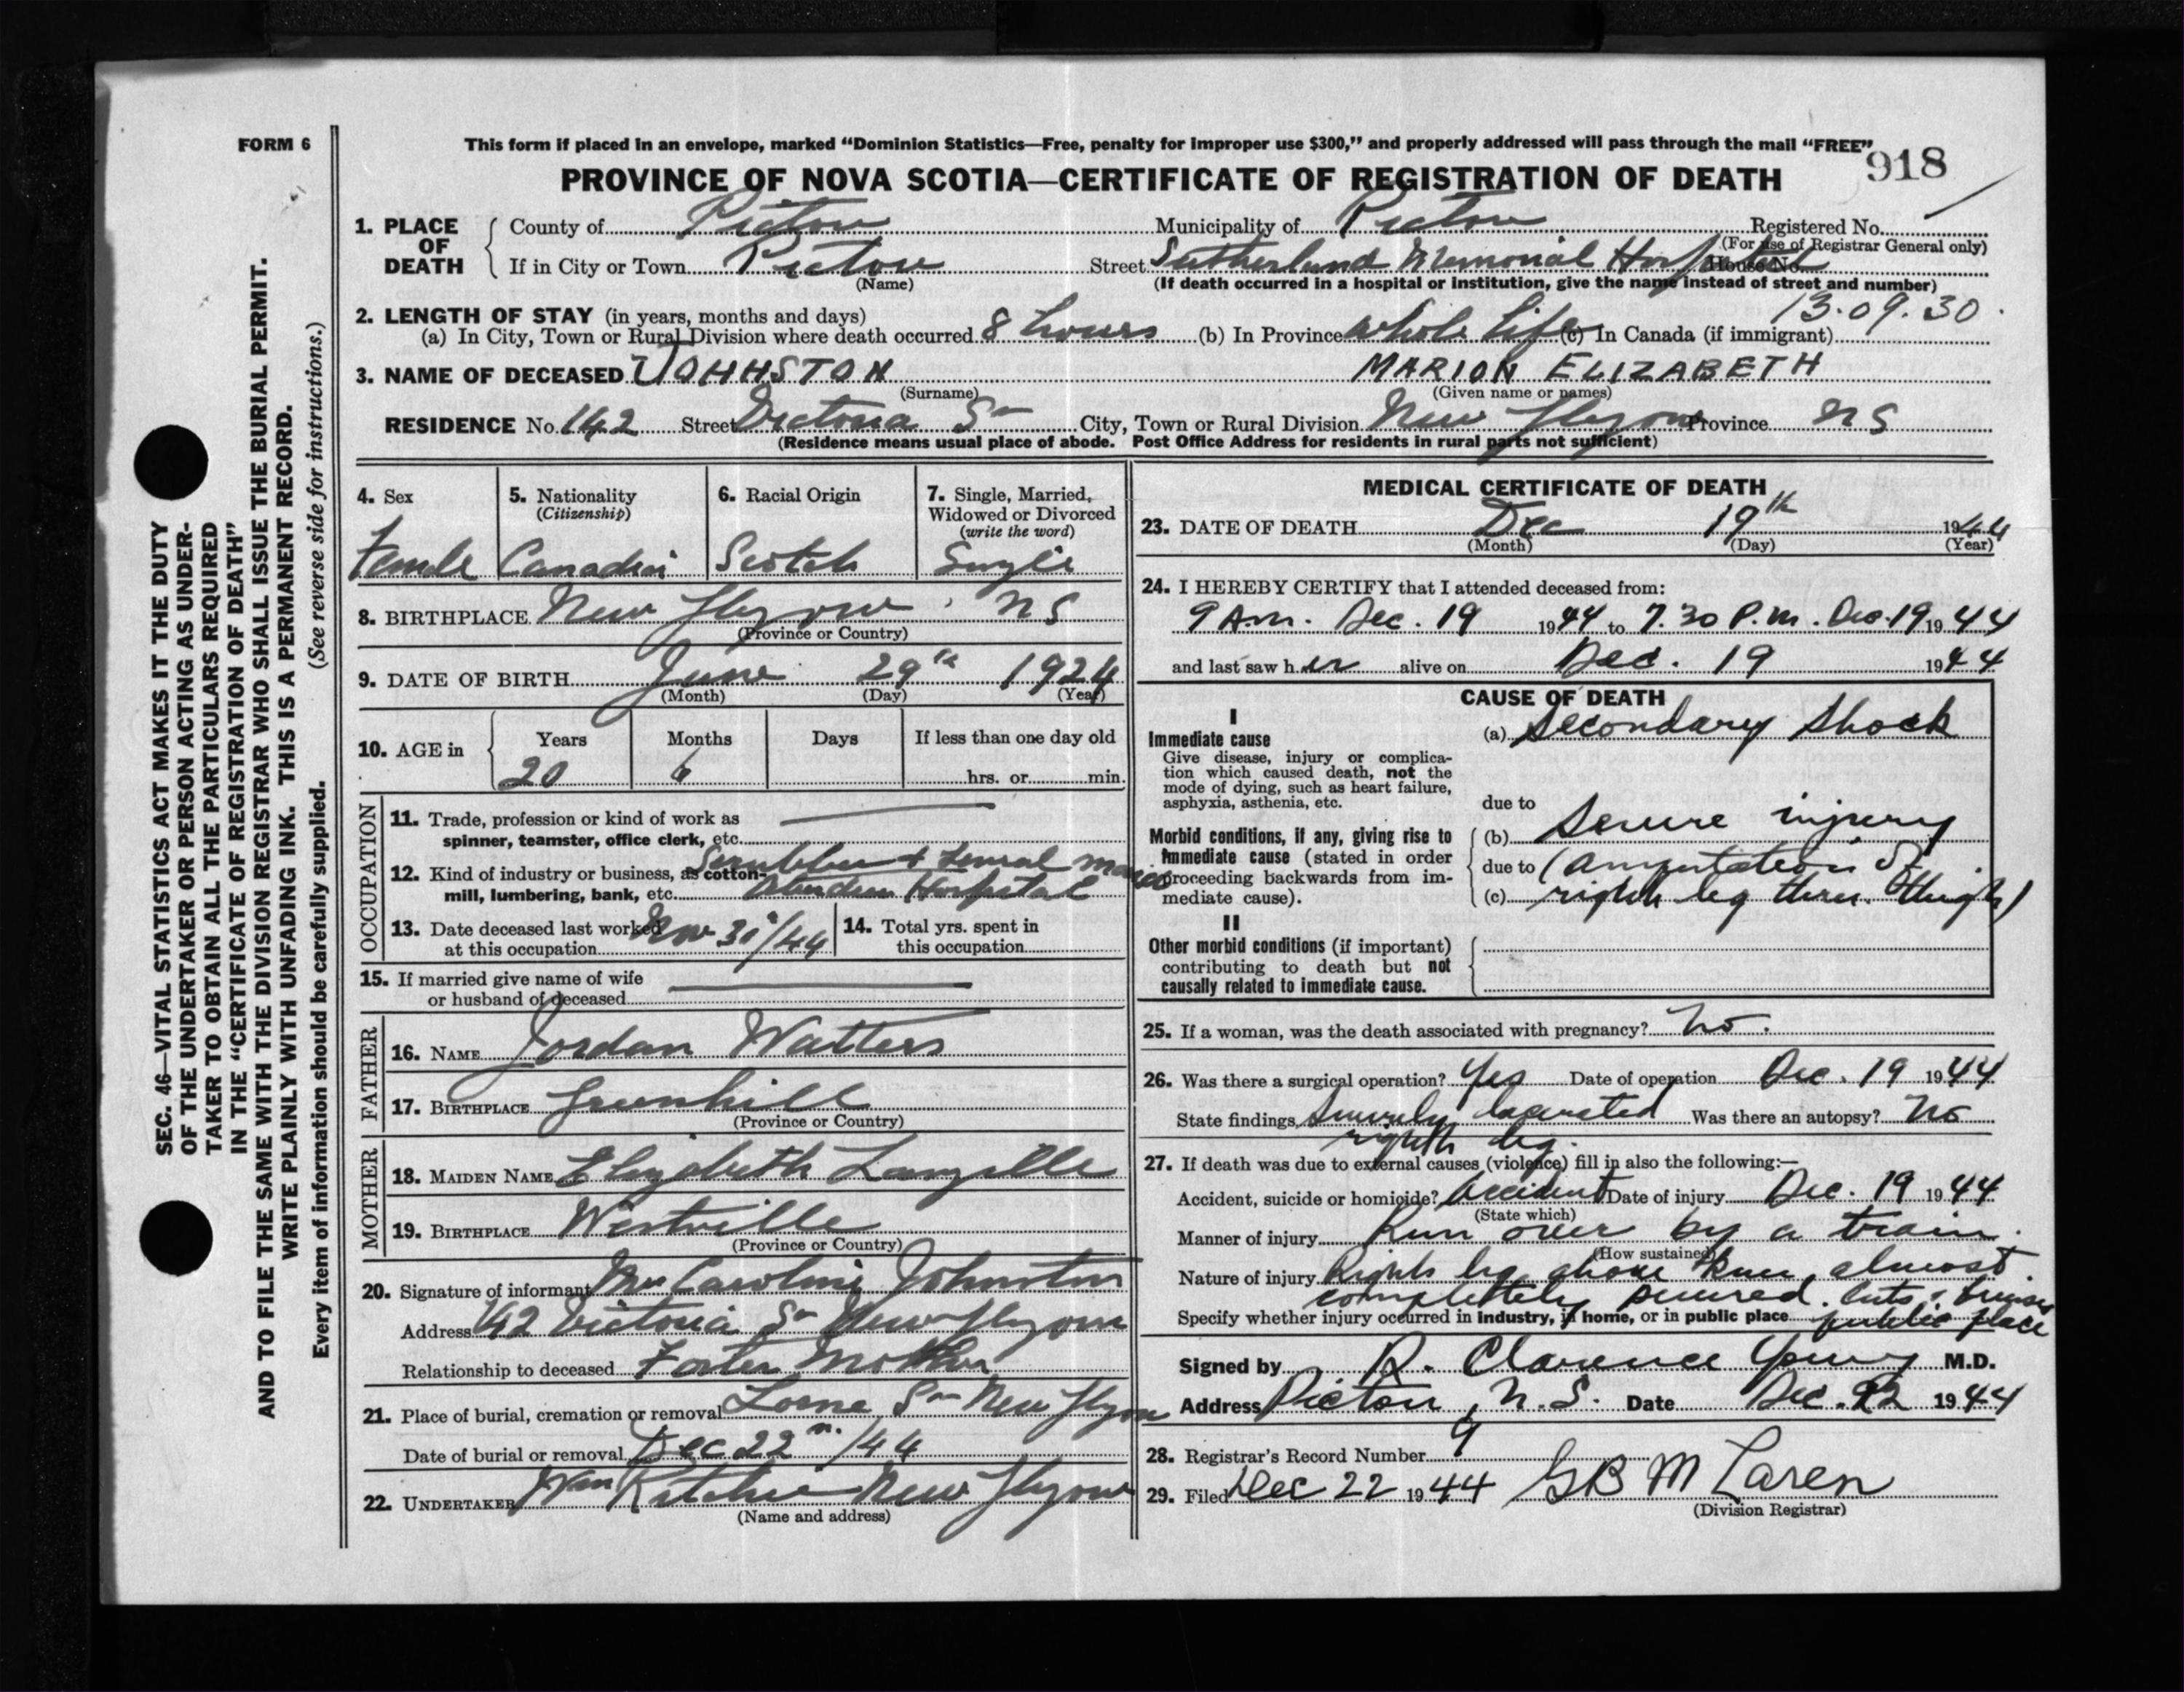 FORM 6
This form if placed in an envelope, marked “Dominion Statistics—Free, penalty for improper use $300,” and properly addressed will pass through the mail “FREE”
918
PROVINCE OF NOVA SCOTIA—CERTIFICATE OF REGISTRATION OF DEATH
SEC. 46—VITAL STATISTICS ACT MAKES IT THE DUTY
OF THE UNDERTAKER OR PERSON ACTING AS UNDER-
TAKER TO OBTAIN ALL THE PARTICULARS REQUIRED
IN THE “CERTIFICATE OF REGISTRATION OF DEATH”
AND TO FILE THE SAME WITH THE DIVISION REGISTRAR WHO SHALL ISSUE THE BURIAL PERMIT.
WRITE PLAINLY WITH UNFADING INK. THIS IS A PERMANENT RECORD.
Every item of information should be carefully supplied. (See reverse side for instructions.)
1. PLACE OF DEATH County of Pictou Municipality of Pictou Registered No.
(For use of Registrar General only)
If in City or Town Pictou Street Sutherland Memorial Hospital House No.
(Name) (If death occurred in a hospital or institution, give the name instead of street and number)
13.09.30.
2. LENGTH OF STAY (in years, months and days)
(a) In City, Town or Rural Division where death occurred 8 hours (b) In Province whole life (c) In Canada (if immigrant)
3. NAME OF DECEASED JOHNSTON MARION ELIZABETH
(Surname) (Given name or names)
RESIDENCE No. 142 Street Victoria St City, Town or Rural Division New Glasgow Province NS
(Residence means usual place of abode. Post Office Address for residents in rural parts not sufficient)
4. Sex 5. Nationality (Citizenship) 6. Racial Origin 7. Single, Married, Widowed or Divorced (write the word)
Female Canadian Scotch Single
8. BIRTHPLACE New Glasgow NS
(Province or Country)
9. DATE OF BIRTH June 29th 1924
(Month) (Day) (Year)
10. AGE in Years Months Days If less than one day old
20 6 hrs. or min.
OCCUPATION
11. Trade, profession or kind of work as
spinner, teamster, office clerk, etc.
12. Kind of industry or business, as cotton- Scrubber +
mill, lumbering, bank, etc. Aberdeen Hospital
13. Date deceased last worked Nov 30/44 14. Total yrs. spent in
at this occupation this occupation
15. If married give name of wife
or husband of deceased
FATHER
16. NAME Jordan Watters
17. BIRTHPLACE Greenhill
(Province or Country)
MOTHER
18. MAIDEN NAME Elizabeth Langille
19. BIRTHPLACE Westville
(Province or Country)
20. Signature of informant Mrs Caroline Johnston
Address 142 Victoria St New Glasgow
Relationship to deceased Foster Mother
21. Place of burial, cremation or removal Lorne St New Glasgow
Date of burial or removal Dec 22n /44
22. UNDERTAKER Wm Ritchie New Glasgow
(Name and address)
MEDICAL CERTIFICATE OF DEATH
23. DATE OF DEATH Dec 19th 1944
(Month) (Day) (Year)
24. I HEREBY CERTIFY that I attended deceased from:
9 A.m. Dec. 19 1944 to 7.30 P.m. Dec. 19 1944
and last saw her alive on Dec. 19 1944
CAUSE OF DEATH
I
Immediate cause (a) Secondary Shock
Give disease, injury or complica-
tion which caused death, not the
mode of dying, such as heart failure,
asphyxia, asthenia, etc.
due to
Morbid conditions, if any, giving rise to (b) Severe injury
immediate cause (stated in order due to (amputation of
proceeding backwards from im- (c) right leg thru thigh)
mediate cause).
II
Other morbid conditions (if important)
contributing to death but not
causally related to immediate cause.
25. If a woman, was the death associated with pregnancy? No.
26. Was there a surgical operation? Yes Date of operation Dec. 19 1944
State findings Severely lacerated Was there an autopsy? No
right leg.
27. If death was due to external causes (violence) fill in also the following:—
Accident, suicide or homicide? Accident Date of injury Dec. 19 1944
(State which)
Manner of injury Run over by a train.
(How sustained)
Nature of injury Right leg above knee almost
completely severed. Cuts & bruises
Specify whether injury occurred in industry, in home, or in public place public place
Signed by R. Clarence Young M.D.
Address Pictou, N.S. Date Dec. 22 1944
28. Registrar’s Record Number 9
29. Filed Dec 22 1944 GB McLaren
(Division Registrar)